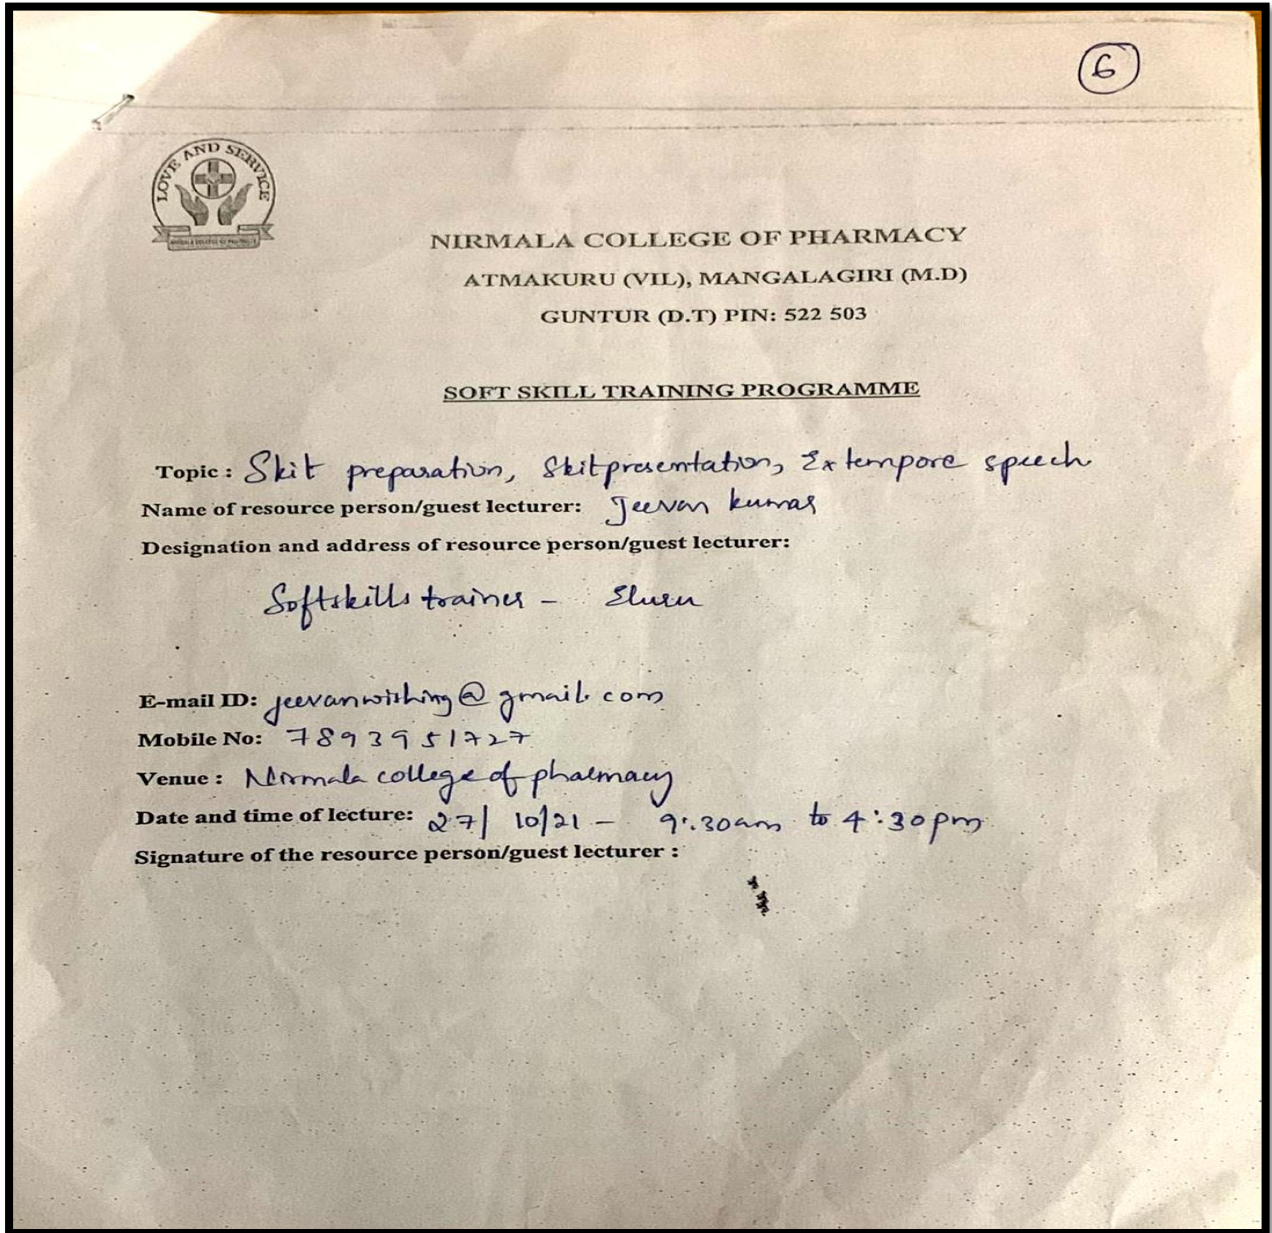 6
LOVE AND SERVICE
NIRMALA COLLEGE OF PHARMACY
NIRMALA COLLEGE OF PHARMACY
ATMAKURU (VIL), MANGALAGIRI (M.D)
GUNTUR (D.T) PIN: 522 503
SOFT SKILL TRAINING PROGRAMME
Topic : Skit preparation, Skit presentation, Extempore speech
Name of resource person/guest lecturer: Jeevan kumar
Designation and address of resource person/guest lecturer:
Softskills trainer - Eluru
E-mail ID: jeevanwishing@gmail.com
Mobile No: 7893951727
Venue : Nirmala college of pharmacy
Date and time of lecture: 27/10/21 - 9:30am to 4:30pm
Signature of the resource person/guest lecturer :